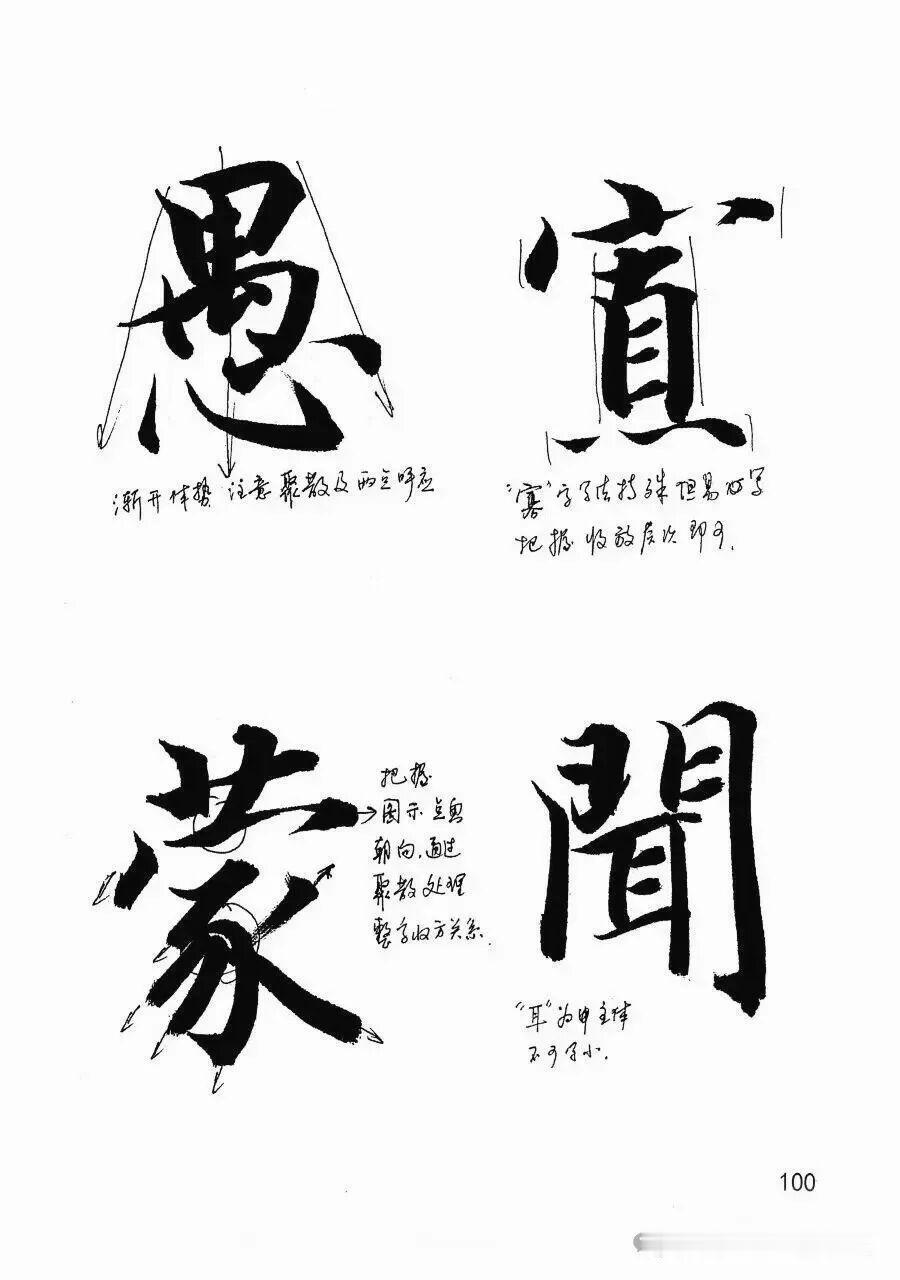 愚
渐开体势 注意聚散及两点呼应
寡
“寡”字字法特殊但易
把握收放层次即可.
蒙
把握
图示点画
朝向,通过
聚散处理
整字收方关系.
聞
“耳”为中主体
不可写小.
100